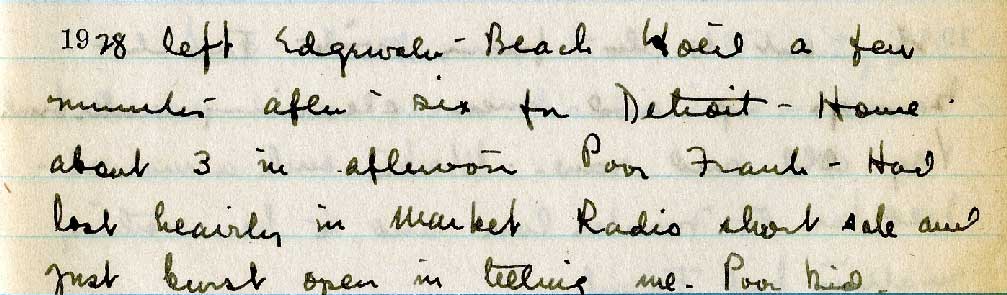 1928 left Edgewater Beach Hotel a few
minutes after six for Detroit - Home
about 3 in afternoon Poor Frank - Had
lost heavily in market Radio short sale and
just burst open in telling me. Poor kid.